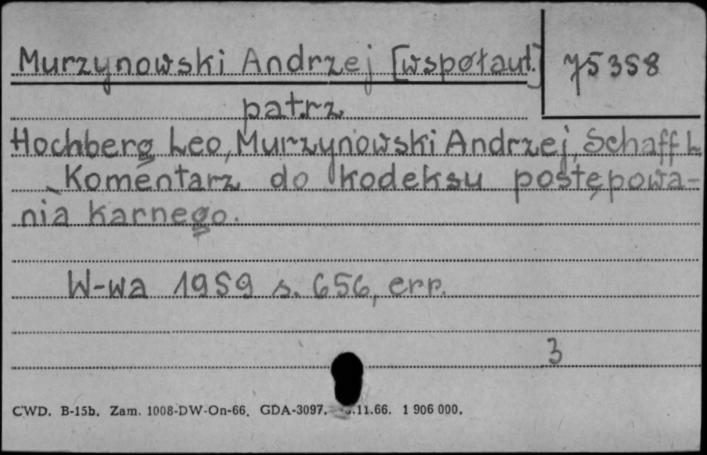 Murzynowski Andrzej [współaut.] 75358
patrz
Hochberg Leo, Murzynowski Andrzej, Schaff L
Komentarz do kodeksu postępowa-
nia karnego.
W-wa 1959 s. 656, err.
3
CWD. B-15b. Zam. 1008-DW-On-66. GDA-3097. .11.66. 1 906 000.